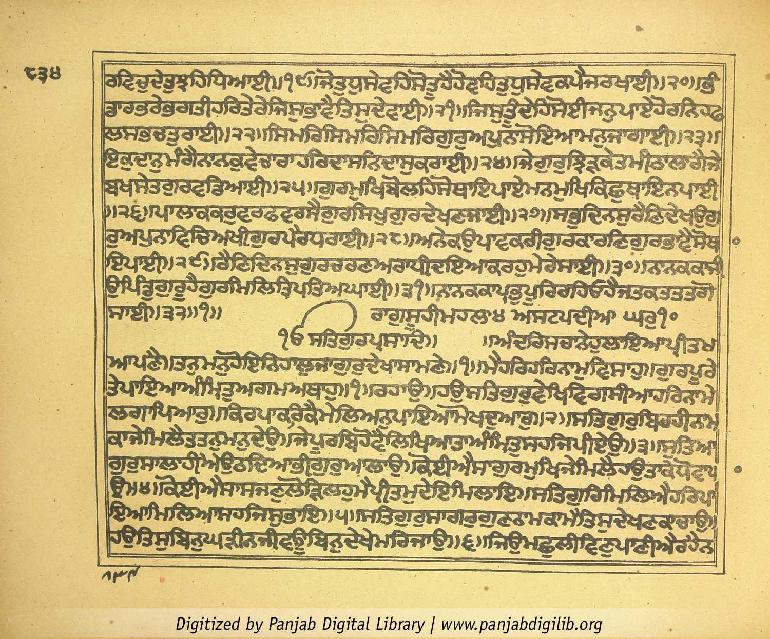 ੮੩੪
ਰਵਿਚਵੇਤੁਝਹਿਧਿਆਈ॥੧੯॥ਜੋਤੁਧੁਸੇਵਹਿਸੋਤੂਹੈਹੋਵਹਿਤੁਧੁਸੇਵਕਪੈਜਰਖਾਈ॥੨੦॥ਭੰ
ਡਾਰਭਰੇਭਗਤੀਹਰਿਤੇਰੇਜਿਸੁਭਾਵੈਤਿਸੁਦੇਵਾਈ॥੨੧॥ਜਿਸੁਤੂੰਦੇਹਿਸੋਈਜਨੁਪਾਏਹੋਰਨਿਹਫ
ਲਸਭਚਤੁਰਾਈ॥੨੨॥ਸਿਮਰਿਸਿਮਰਿਸਿਮਰਿਗੁਰੁਅਪੁਨਾਸੋਇਆਮਨੁਜਾਗਾਈ॥੨੩॥
ਇਕੁਦਾਨੁਮੰਗੈਨਾਨਕੁਵੇਚਾਰਾਹਰਿਦਾਸਨਿਦਾਸੁਕਰਾਈ॥੨੪॥ਜੇਗੁਰੁਝਿੜਕੇਤਮੀਠਾਲਾਗੈਜੇ
ਬਖਸੇਤਗੁਰਵਡਿਆਈ॥੨੫॥ਗੁਰਮੁਖਿਬੋਲਹਿਸੋਥਾਇਪਾਏਮਨਮੁਖਿਕਿਛੁਥਾਇਨਪਾਈ
॥੨੬॥ਪਾਲਾਕਕਰੁਵਰਫਵਰਸੈਗੁਰਸਿਖੁਗੁਰਦੇਖਣਜਾਈ॥੨੭॥ਸਭੁਦਿਨਸੁਰੈਣਿਦੇਖਉਗੁ
ਰੁਅਪੁਨਾਵਿਚਿਅਖੀਗੁਰਪੈਰਧਰਾਈ॥੨੮॥ਅਨੇਕਉਪਾਵਕਰੀਗੁਰਕਾਰਣਿਗੁਰਭਾਵੈਸੋਥਾ
ਇਪਾਈ॥੨੯॥ਰੈਣਿਦਿਨਸੁਗੁਰਚਰਣਅਰਾਧੀਦਇਆਕਰਹੁਮੇਰੇਸਾਈ॥੩੦॥ਨਾਨਕਕਾਜੀ
ਉਪਿੰਡੁਗੁਰੂਹੈਗੁਰਮਿਲਿਤ੍ਰਿਪਤਿਅਘਾਈ॥੩੧॥ਨਾਨਕਕਾਪ੍ਰਭੁਪੂਰਿਰਹਿਓਹੈਜਤਕਤਤਤਗੋ
ਸਾਈ॥੩੨॥੧॥ ਰਾਗੁਸੂਹੀਮਹਲਾ੪ ਅਸਟਪਦੀਆ ਘਰੁ੧੦
ੴ ਸਤਿਗੁਰਪ੍ਰਸਾਦਿ॥ ॥ਅੰਦਰਿਸਚਾਨੇਹੁਲਾਇਆਪ੍ਰੀਤਮ
ਆਪਣੈ॥ਤਨੁਮਨੁਹੋਇਨਿਹਾਲੁਜਾਗੁਰੁਦੇਖਾਸਾਮਣੇ॥੧॥ਮੈਹਰਿਹਰਿਨਾਮੁਵਿਸਾਹੁ॥ਗੁਰਪੂਰੇ
ਤੇਪਾਇਆਅੰਮ੍ਰਿਤੁਅਗਮਅਥਾਹੁ॥੧॥ਰਹਾਉ॥ਹਉਸਤਿਗੁਰੁਵੇਖਿਵਿਗਸੀਆਹਰਿਨਾਮੇ
ਲਗਾਪਿਆਰੁ॥ਕਿਰਪਾਕਰਿਕੈਮੇਲਿਅਨੁਪਾਇਆਮੋਖਦੁਆਰੁ॥੨॥ਸਤਿਗੁਰੁਬਿਰਹੀਨਾਮ
ਕਾਜੇਮਿਲੈਤਤਨੁਮਨੁਦੇਉ॥ਜੇਪੂਰਬਿਹੋਵੈਲਿਖਿਆਤਾਅੰਮ੍ਰਿਤੁਸਹਜਿਪੀਏਉ॥੩॥ਸੁਤਿਆ
ਗੁਰੁਸਾਲਾਹੀਐਉਠਦਿਆਭੀਗੁਰੁਆਲਾਉ॥ਕੋਈਐਸਾਗੁਰਮੁਖਿਜੇਮਿਲੈਹਉਤਾਕੇਧੋਵਾਪਾ
ਉ॥੪॥ਕੋਈਐਸਾਸਜਣੁਲੋੜਿਲਹੁਮੈਪ੍ਰੀਤਮੁਦੇਇਮਿਲਾਇ॥ਸਤਿਗੁਰਿਮਿਲਿਐਹਰਿਪਾ
ਇਆਮਿਲਿਆਸਹਜਿਸੁਭਾਇ॥੫॥ਸਤਿਗੁਰੁਸਾਗਰੁਗੁਣਨਾਮਕਾਮੈਤਿਸੁਦੇਖਣਕਾਚਾਉ॥
ਹਉਤਿਸੁਬਿਨੁਘੜੀਨਜੀਵਊਬਿਨੁਦੇਖੇਮਰਿਜਾਉ॥੬॥ਜਿਉਮਛੁਲੀਵਿਣੁਪਾਣੀਐਰਹੈਨ
Digitized by Panjab Digital Library | www.panjabdigilib.org